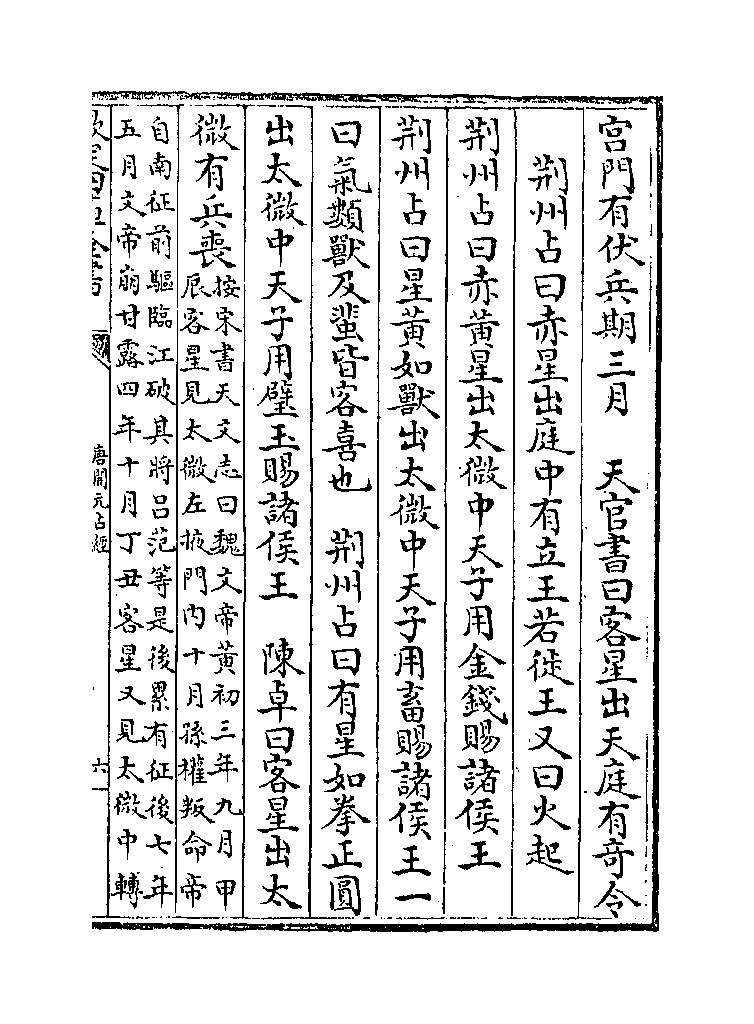 宫門有伏兵期三月　天官書曰客星出天庭有奇令
荆州占曰赤星出庭中有立王若徙王又曰火起
荆州占曰赤黄星出太微中天子用金錢賜諸侯王
荆州占曰星黄如獸出太微中天子用畜賜諸侯王一
曰氣類獸及蜚皆客喜也　荆州占曰有星如拳正圓
出太微中天子用璧玉賜諸侯王　陳卓曰客星出太
微有兵喪
按宋書天文志曰魏文帝黄初三年九月甲
辰客星見太微左掖門内十月孫權叛命帝
自南征前驅臨江破其將吕范等是後累有征後七年
五月文帝崩甘露四年十月丁丑客星又見太微中轉
欽定四庫全書
唐開元占經
六